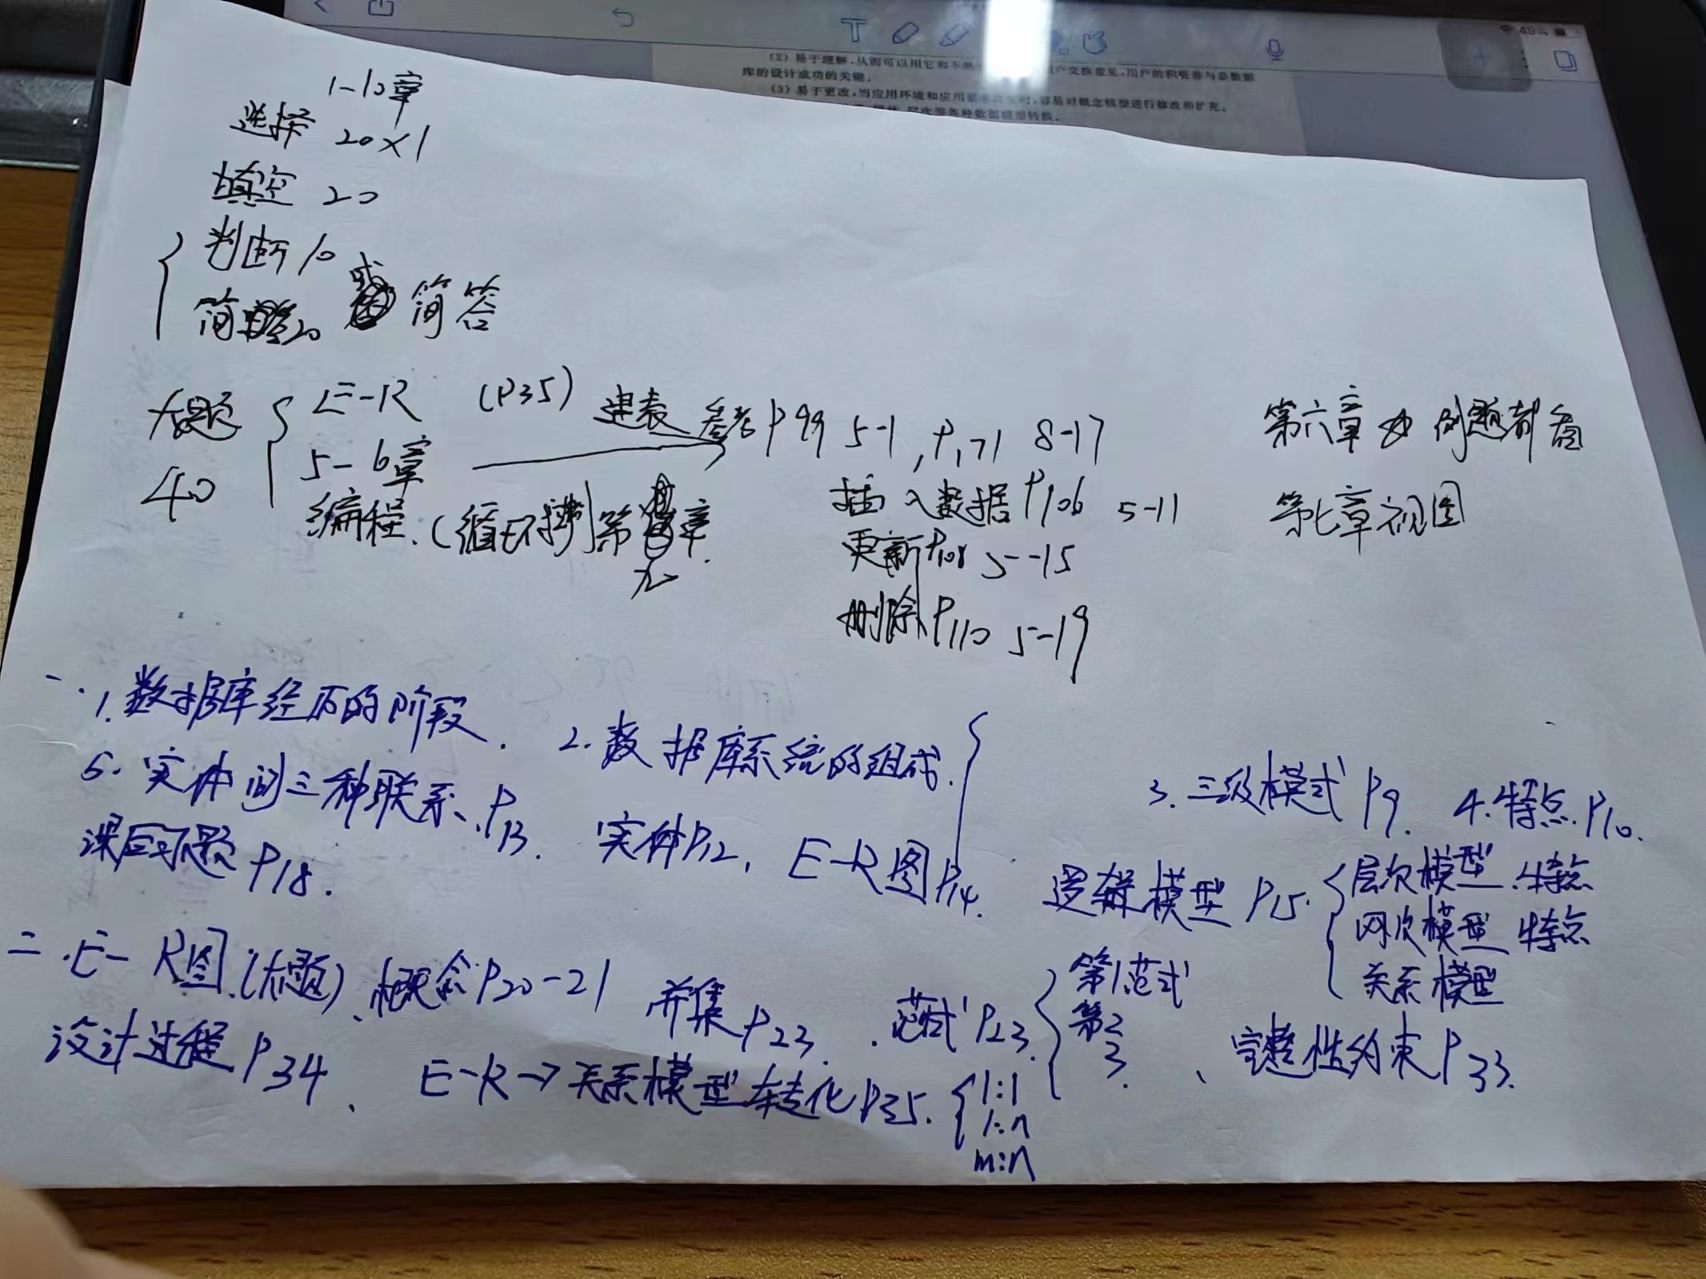 (2) 易于理解,从而可以用它和不熟 户交换意见,用户的积极参与是数据
库的设计成功的关键。
(3) 易于更改,当应用环境和应用要求改变时,容易对概念模型进行修改和扩充。
1-10章
选择 20×1
填空 20
判断 10 或
简答20 简答
大题 40
E-R (P35) 建表 参考P99 5-1, P171 8-17
5-6章
编程.(循环) 第九章.
插入数据P106 5-11
更新P108 5-15
删除P110 5-19
第六章 例题都看
第七章视图
一. 1. 数据库经历的阶段. 2. 数据库系统的组成. 3. 三级模式P9. 4. 特点.P10.
5. 实体间三种联系.P13. 实体P12, E-R图P14. 逻辑模型P15.
层次模型.特点
网次模型 特点
关系模型
课后习题P18.
二. E-R图.(大题)、概念P20-21 并集P23. 范式P23.
第1范式
第2
3.
、完整性约束P33.
设计过程P34、 E-R→关系模型转化P35.
1:1
1:n
m:n